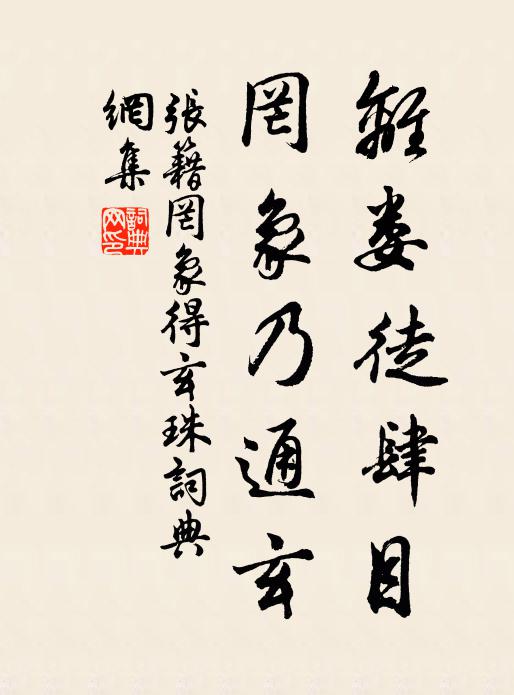 離婁徒肆目
罔象乃通玄
張籍罔象得玄珠詞典
網集
詞典
网印